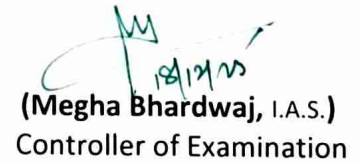 (Megha Bhardwaj, I.A.S.)
Controller of Examination